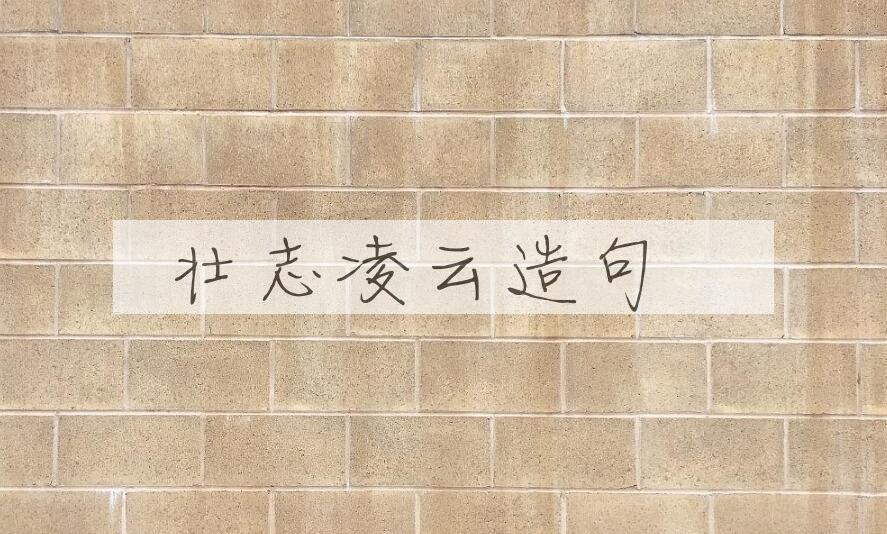 壮志凌云造句